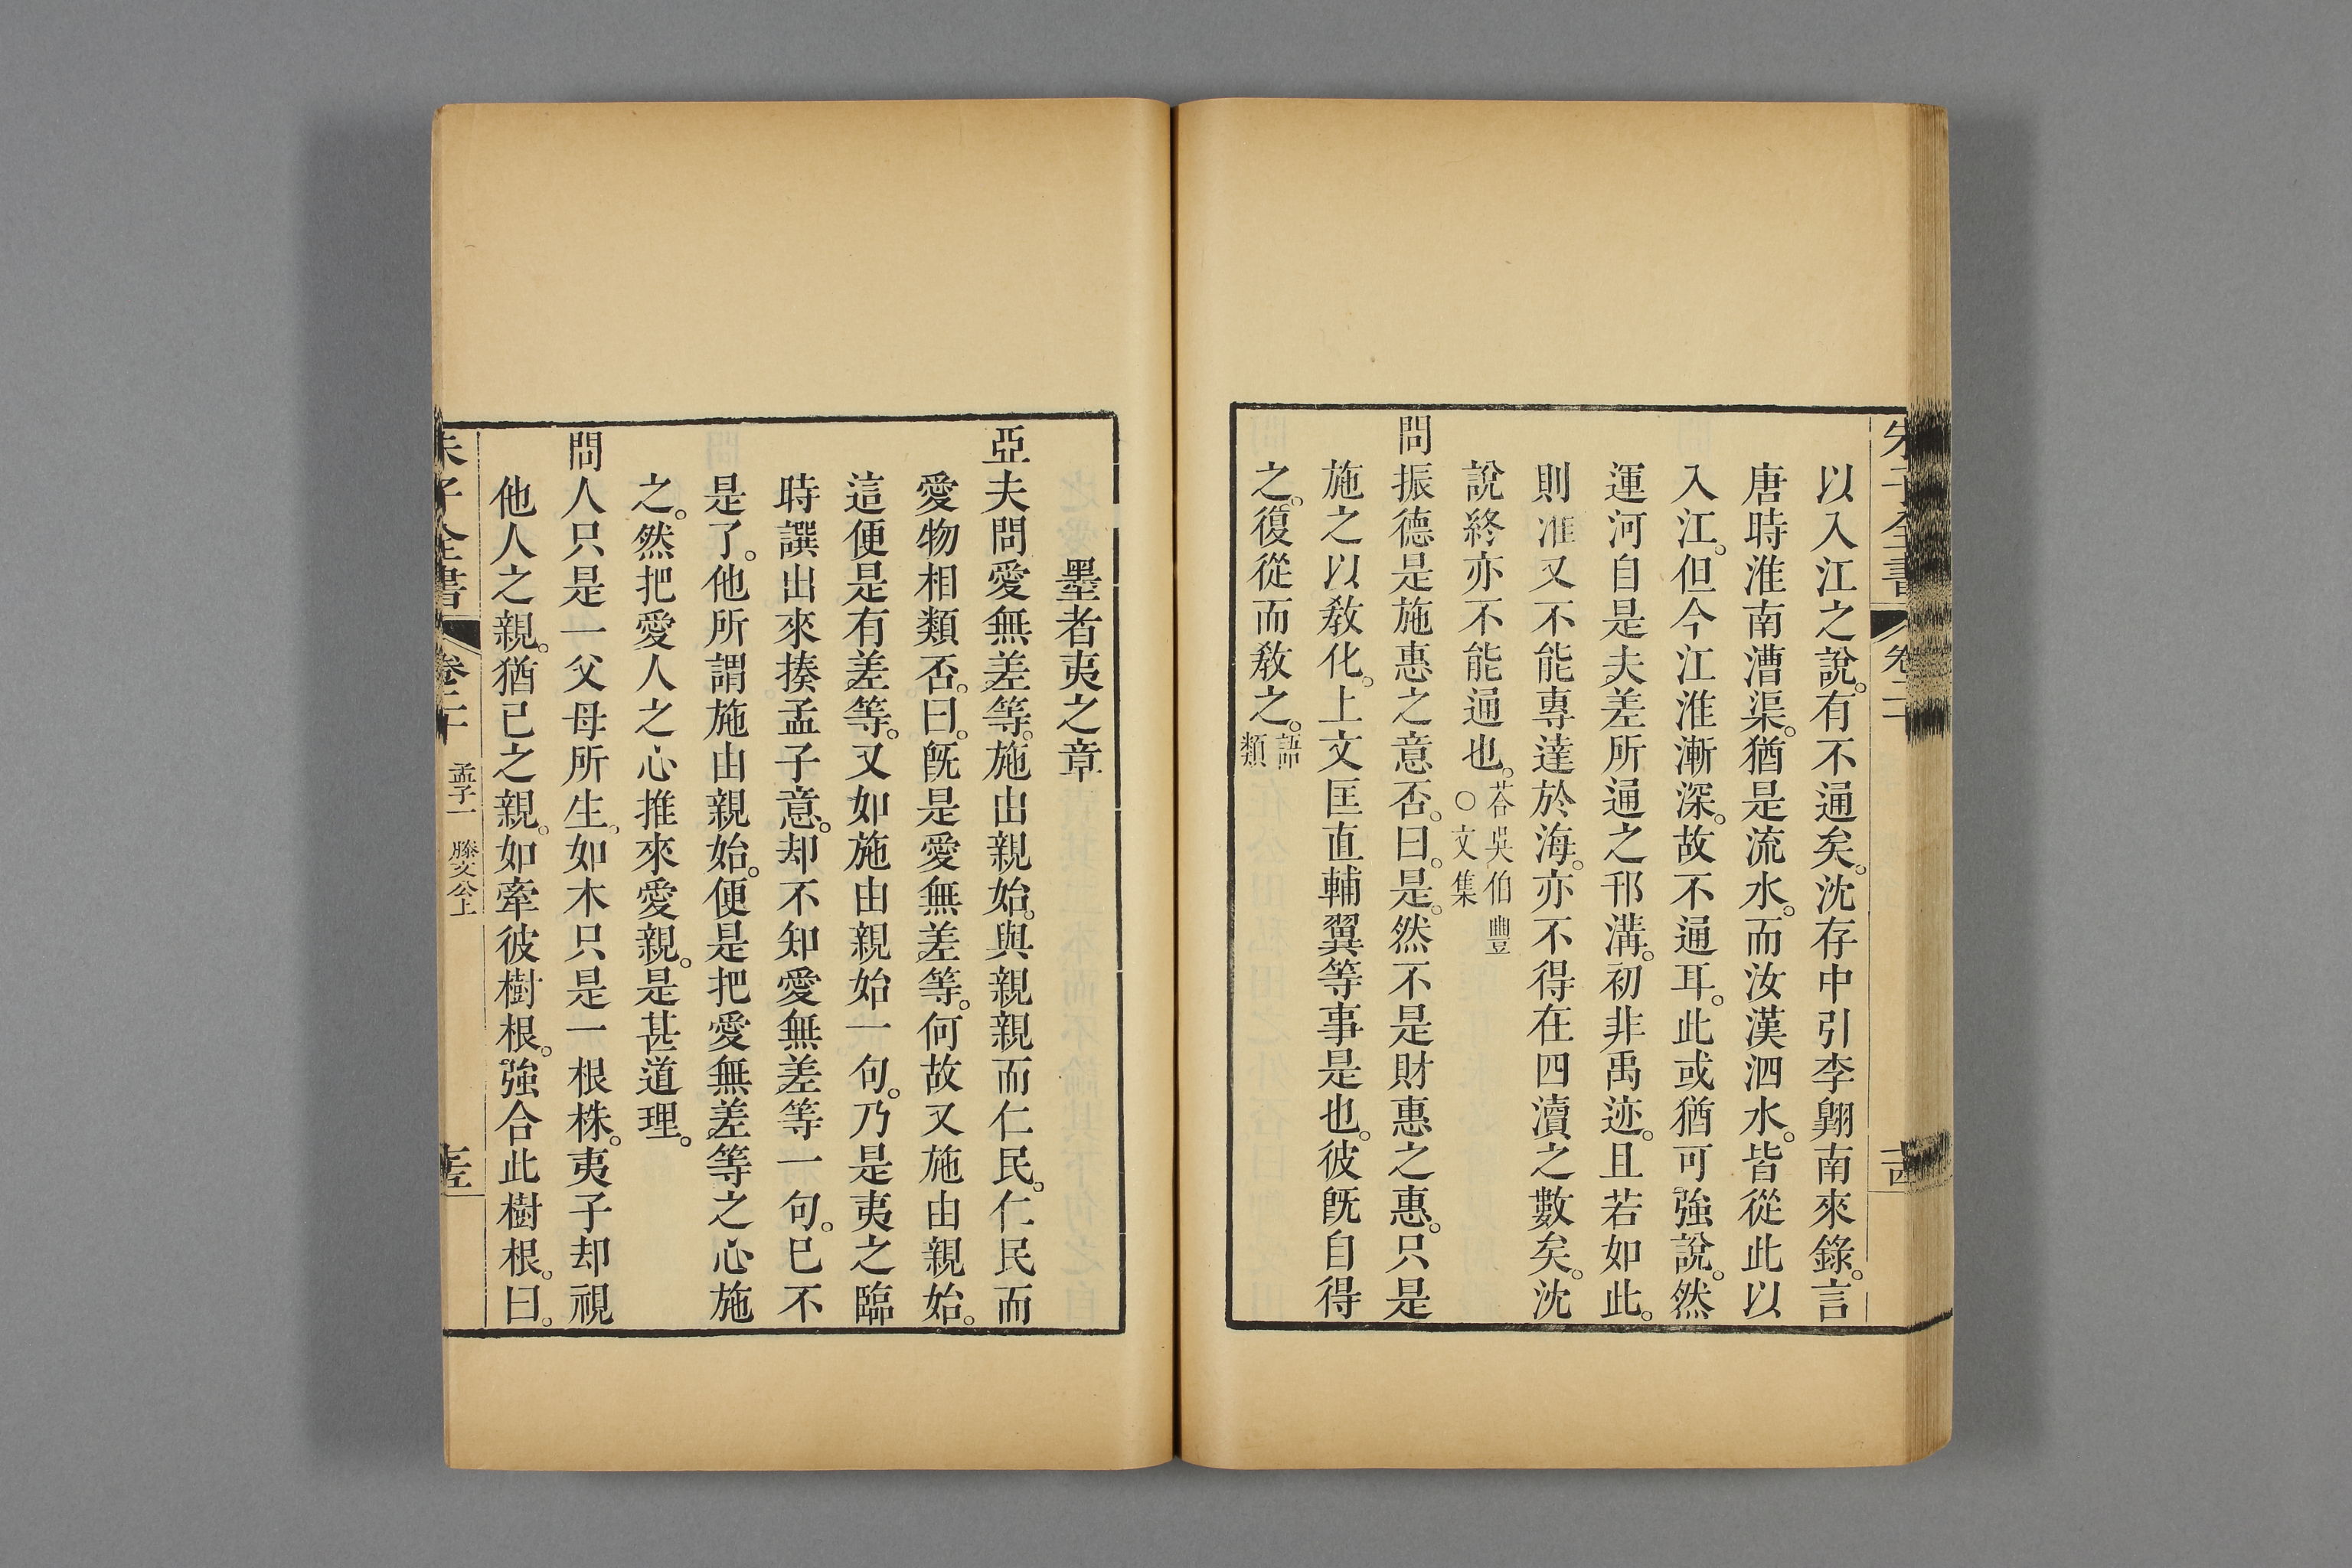 朱子全書 卷二十
以入江之說。有不通矣。沈存中引李翺南來錄。言
唐時淮南漕渠。猶是流水。而汝漢泗水。皆從此以
入江。但今江淮漸深。故不通耳。此或猶可強說。然
運河自是夫差所通之邗溝。初非禹迹。且若如此。
則淮又不能專達於海。亦不得在四瀆之數矣。沈
說終亦不能通也。荅吳伯豐○文集
問振德是施惠之意否。曰。是。然不是財惠之惠。只是
施之以敎化。上文匡直輔翼等事是也。彼旣自得
之。復從而敎之。語類
墨者夷之章
亞夫問愛無差等。施由親始。與親親而仁民。仁民而
愛物相類否。曰。旣是愛無差等。何故又施由親始。
這便是有差等。又如施由親始一句。乃是夷之臨
時譔出來揍孟子意。却不知愛無差等一句。已不
是了。他所謂施由親始。便是把愛無差等之心施
之。然把愛人之心推來愛親。是甚道理。
問人只是一父母所生。如木只是一根株。夷子却視
他人之親。猶已之親。如牽彼樹根。強合此樹根。曰。
朱子全書 卷二十 孟子一 滕文公上